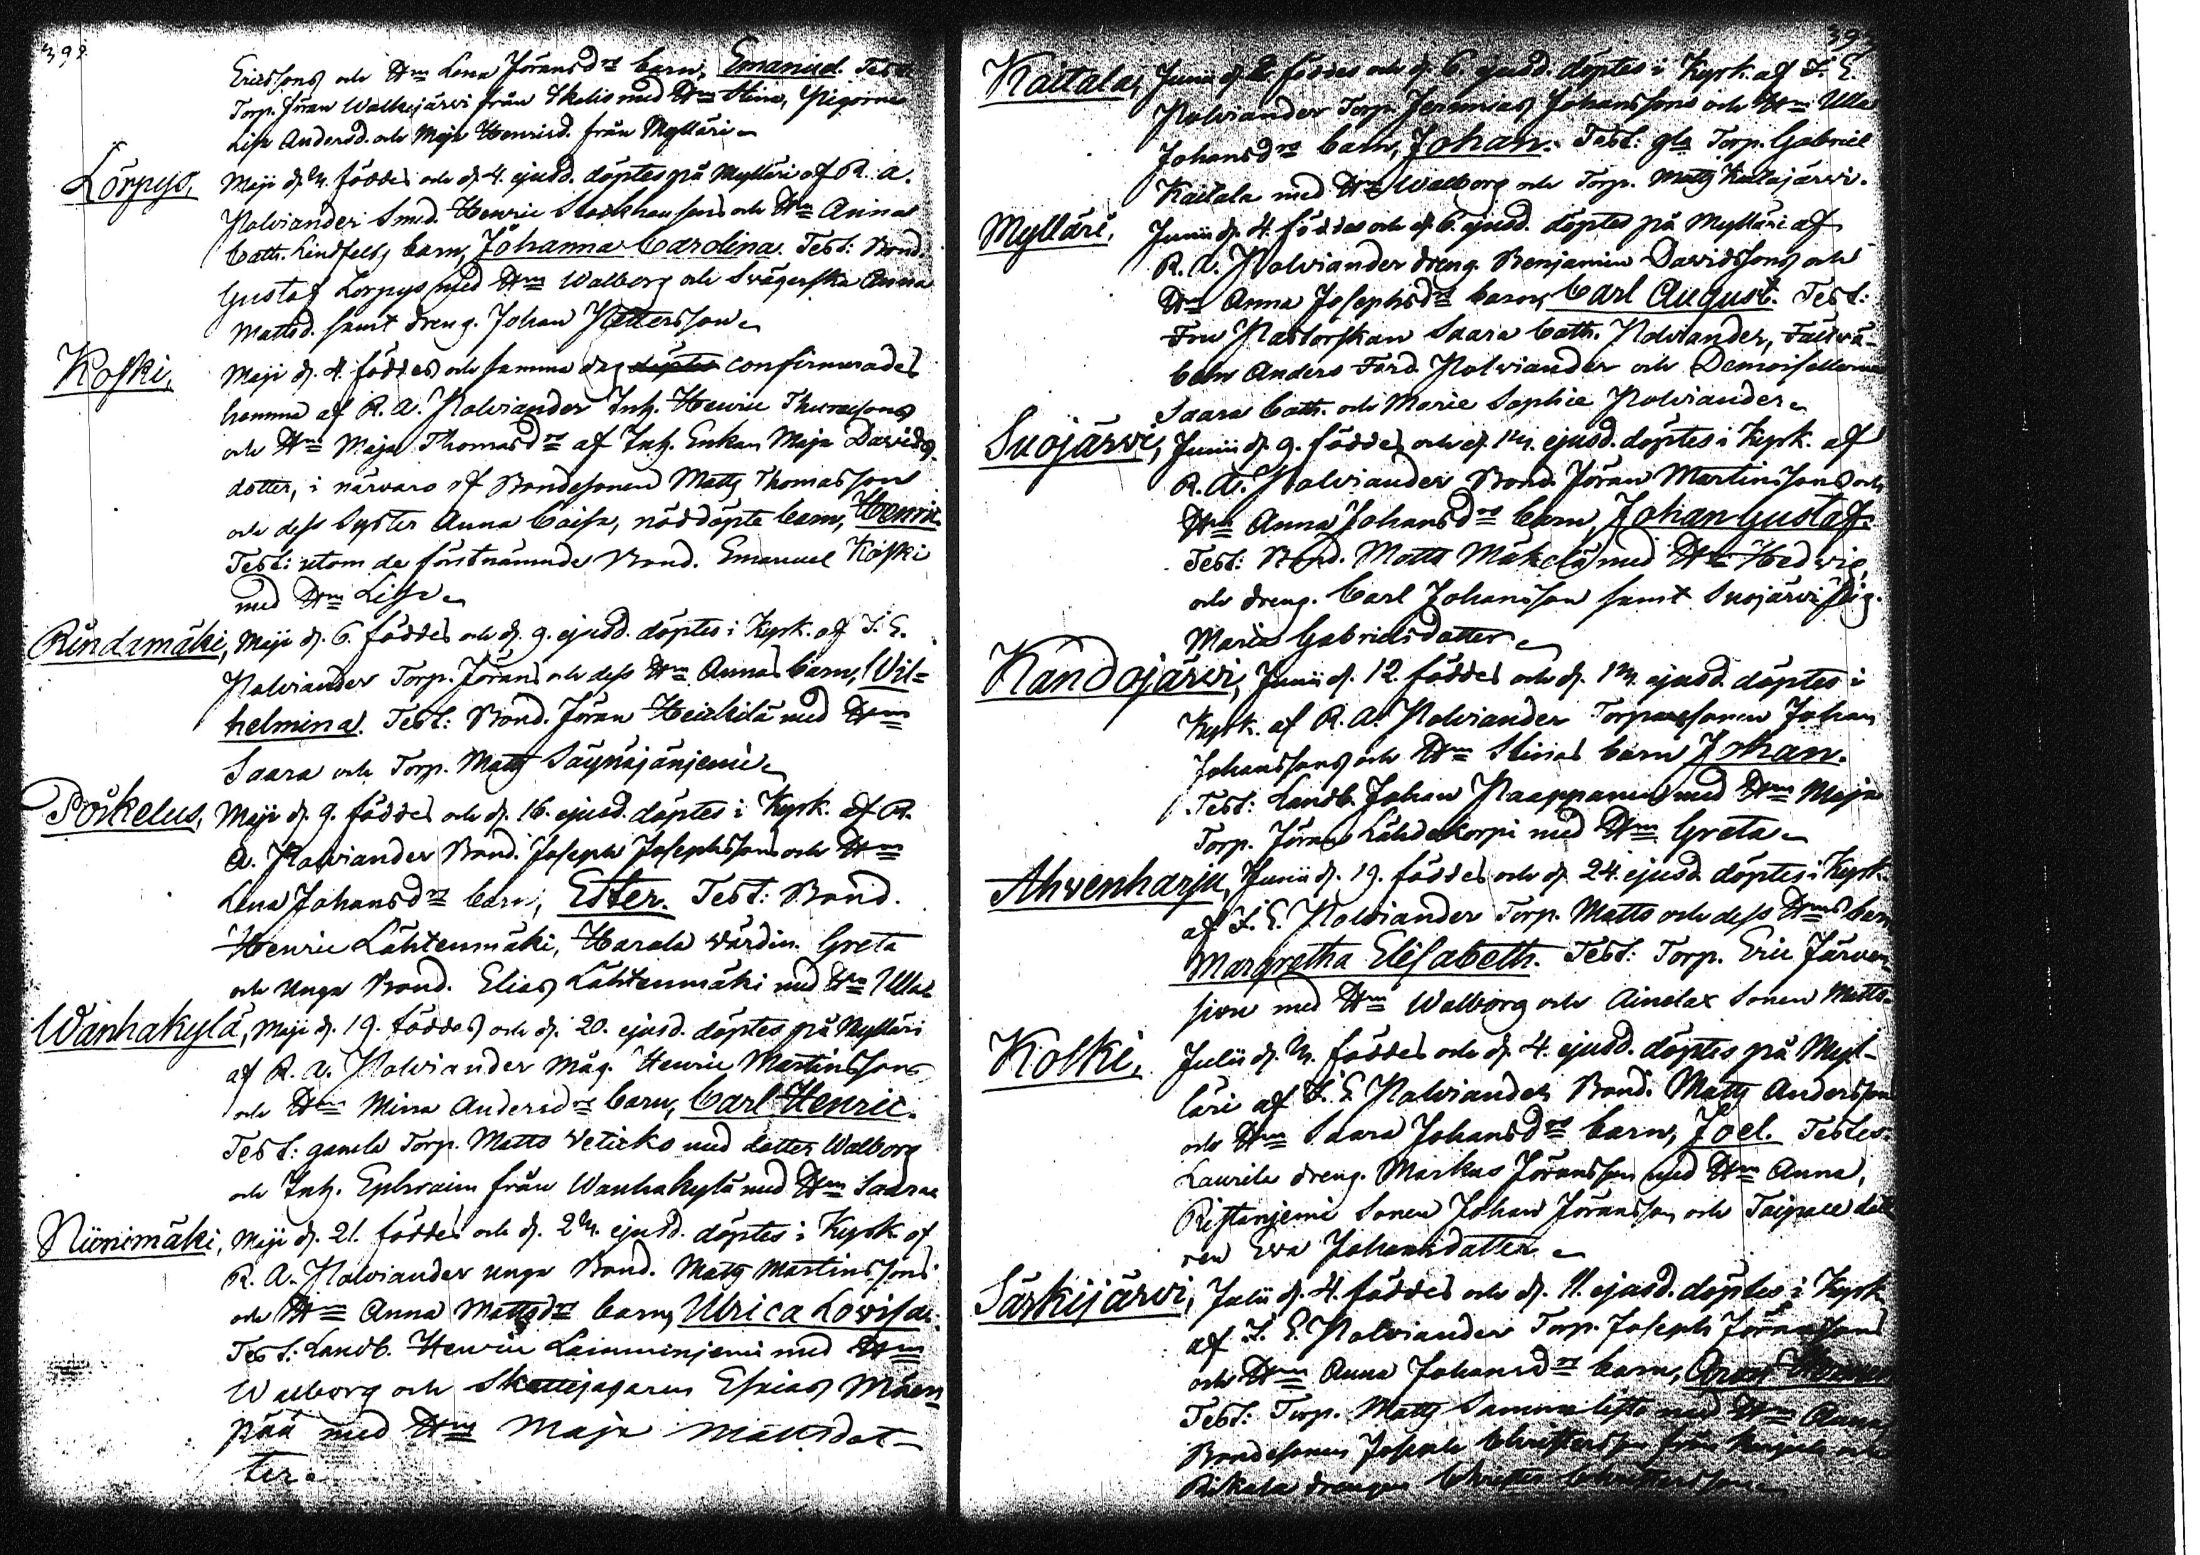 392.
Ericssons och H:m Lena Jöransd:rs barn, Emanuel. Test:
Torp. Jöran Walkejärwi från Skelis med H:m Stina, Pigorne
Lisa Andersd. och Maja Henricsd. från Mylläri
Lörpys, Maji d. 2. föddes och d. 4. ejusd. döptes på Mylläri af R. A.
Polviander Smed. Henric Stockhaussons och H:m Anna
Cath. Lindfelts barn, Johanna Carolina. Test: Bond.
Gustaf Lörpys med H:m Walborg och Svägerska Anna
Mattsd. samt dreng. Johan Pettersson
Koski, Maji d. 4. föddes och samma dag döptes confirmerades
hemma af R. A. Polviander Inh. Henric Thomassons
och H:m Maja Thomasd:rs af Inh. Enkan Maja Davids-
dotter, i närvaro af Bondesonen Matts Thomasson
och dess Syster Anna Caisa, nöddöpte barn, Henric.
Test: utom de förstnämnde Bond. Emanuel Koski
med H:m Lissa
Rindamäki, Maji d. 6. föddes och d. 9. ejusd. döptes i Kyrk. af F. E.
Polviander Torp. Jörans och dess H:m Annas barn, Wil-
helmina. Test: Bond. Jöran Heickilä med H:m
Saara och Torp. Matts Säynäjänjemi
Poikelus, Maji d. 9. föddes och d. 16. ejusd. döptes i Kyrk. af R.
A. Polviander Bond. Joseph Josephssons och H:m
Lena Johansd:rs barn, Ester. Test: Bond.
Henric Lähtenmäki, Harala värdin. Greta
och unga Bond. Elias Lähtenmäki med H:m Ulla
Wanhakylä, Maji d. 19. föddes och d. 20. ejusd. döptes på Mylläri
af R. A. Polviander Måg. Henric Martinssons
och H:m Mina Andersd:rs barn, Carl Henric.
Test: gamla Torp. Matts Weticko med dotter Walborg
och Inh. Ephraim från Wanhakylä med H:m Saara
Niinimäki, Maji d. 21. föddes och d. 23. ejusd. döptes i Kyrk. af
R. A. Polviander unga Bond. Matts Martinssons
och H:m Anna Mattsd:rs barn, Ulrica Lovisa.
Test: Landb. Henric Lamminjemi med H:m
Walborg och Skottejägaren Esaias Mäen-
pää med H:m Maja Mattsdot-
ter.
393
Kaitala, Junii d. 2. föddes och d. 6. ejusd. döptes i Kyrk. af F. E.
Polviander Torp. Jeremias Johanssons och H:m Ulla
Johansd:rs barn, Johan. Test: gla Torp. Gabriel
Kaitala med H:m Walborg och Torp. Matts Kallajärvi.
Mylläri, Junii d. 4. föddes och d. 6. ejusd. döptes på Mylläri af
R. A. Polviander dreng. Benjamin Davidssons och
H:m Anna Josephsd:rs barn, Carl August. Test:
Fru Pastorskan Saara Cath. Polviander, Fältvä-
beln Anders Ferd. Polviander och Demoisellerna
Saara Cath. och Marie Sophie Polviander
Suojärwi, Junii d. 9. föddes och d. 13. ejusd. döptes i Kyrk. af
R. A. Polviander Bond. Jöran Martinssons och
H:m Anna Johansd:rs barn, Johan Gustaf.
Test: Bond. Matts Mäkelä med H:m Hedvig,
och dreng. Carl Johansson samt Suojärvi pig.
Maria Gabrielsdotter
Kandojärwi, Junii d. 12. föddes och d. 13. ejusd. döptes i
Kyrk. af R. A. Polviander Torparesonen Johan
Johanssons och H:m Stinas barn Johan.
Test: Landb. Johan Haappanen med H:m Maja
Torp. Jöran Lähdekorpi med H:m Greta
Ahvenharju, Junii d. 19. föddes och d. 24. ejusd. döptes i Kyrk.
af F. E. Polviander Torp. Matts och dess H:ms barn
Margretha Elisabeth. Test: Torp. Eric Järven-
med H:m Walborg och Ainelax Sonen Matts
Kolki, Julii d. 3. föddes och d. 4. ejusd. döptes på Myl-
läri af F. E. Polviander Bond. Matts Anderssons
och H:m Saara Johansd:rs barn, Joel. Testes:
Laurila dreng. Markus Jöransson med H:m Anna,
Ristanjemi Sonen Johan Jöransson och Taipale dott
ren Eva Johansdotter
Särkijärwi, Julii d. 4. föddes och d. 11. ejusd. döptes i Kyrk.
af F. E. Polviander Torp. Joseph Jöranssons
och H:m Anna Johansd:rs barn,
Test: Torp. Matts med H:m Anna
Bondesonen Joseph Christersson från och
Rikala drengen Christersson